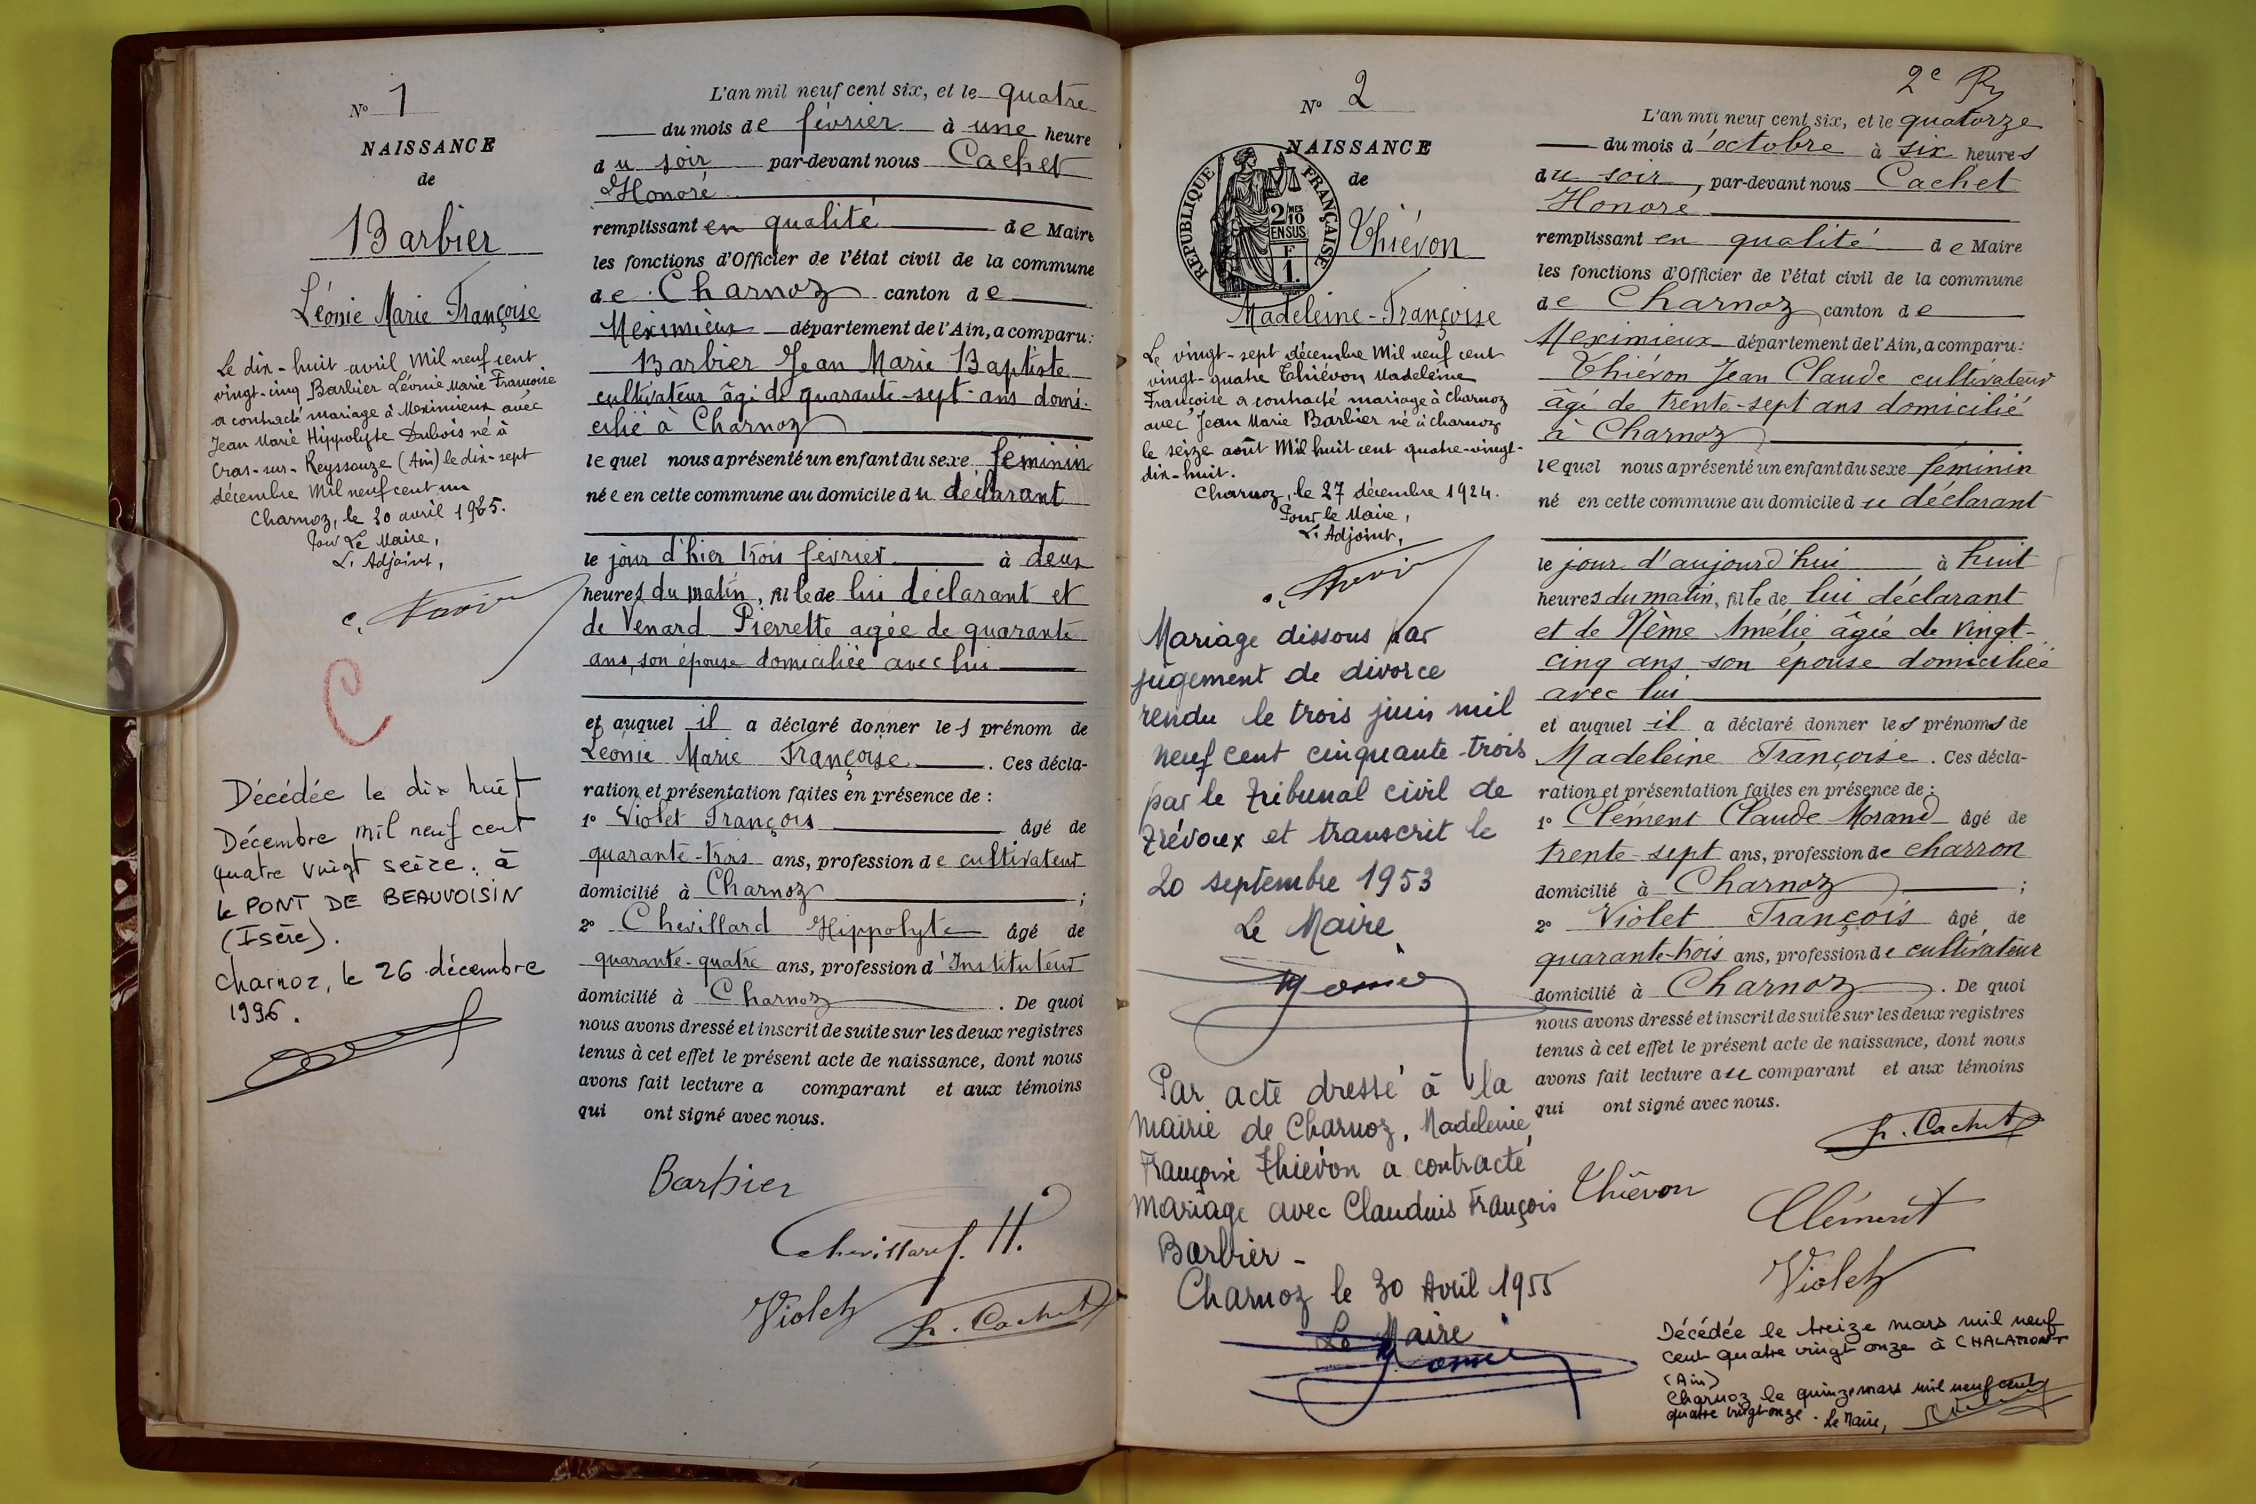 N° 1
NAISSANCE
de
Barbier
Léonie Marie Françoise
Le dix-huit avril Mil neuf cent
vingt-cinq Barbier Léonie Marie Françoise
a contracté mariage à Meximieux avec
Jean Marie Hippolyte Dubois né à
Cras-sur-Reyssouze (Ain) le dix-sept
décembre Mil neuf cent un
Charnoz, le 30 avril 1925.
Pour Le Maire,
L'Adjoint,
C
Décédée le dix huit
Décembre mil neuf cent
quatre vingt seize. à
le PONT DE BEAUVOISIN
(Isère).
Charnoz, le 26 décembre
1996.
L'an mil neuf cent six, et le quatre
du mois de février à une heure
du soir par-devant nous Cachet
Honoré
remplissant en qualité de Maire
les fonctions d'Officier de l'état civil de la commune
de Charnoz canton de
Meximieux département de l'Ain, a comparu:
Barbier Jean Marie Baptiste
cultivateur âgé de quarante-sept-ans domi-
cilié à Charnoz
lequel nous a présenté un enfant du sexe féminin
née en cette commune au domicile du déclarant
le jour d'hier trois février à deux
heures du matin, fille de lui déclarant et
de Venard Pierrette agée de quarante
ans, son épouse domiciliée avec lui
et auquel il a déclaré donner les prénom de
Léonie Marie Françoise. Ces décla-
ration et présentation faites en présence de :
1° Violet François âgé de
quarante-trois ans, profession de cultivateur
domicilié à Charnoz ;
2° Chevillard Hippolyte âgé de
quarante-quatre ans, profession d'Instituteur
domicilié à Charnoz. De quoi
nous avons dressé et inscrit de suite sur les deux registres
tenus à cet effet le présent acte de naissance, dont nous
avons fait lecture a comparant et aux témoins
qui ont signé avec nous.
Barbier
Chevillard. H.
Violet
h. Cachet
N° 2
NAISSANCE
de
RÉPUBLIQUE FRANÇAISE
2/10
MES
EN SUS
F
1.
Thiévon
Madeleine-Françoise
Le vingt-sept décembre Mil neuf cent
vingt-quatre Thiévon Madeleine
Françoise a contracté mariage à Charnoz
avec Jean Marie Barbier né à Charnoz
le seize août Mil huit cent quatre-vingt-
dix-huit.
Charnoz, le 27 décembre 1924.
Pour le Maire,
L'Adjoint,
Mariage dissous par
jugement de divorce
rendu le trois juin mil
neuf cent cinquante-trois
par le tribunal civil de
Trévoux et transcrit le
20 septembre 1953
Le Maire
Par acte dressé à la
mairie de Charnoz, Madeleine
Françoise Thiévon a contracté
mariage avec Claudius François
Barbier -
Charnoz le 30 Avril 1955
Le Maire
2e
L'an mil neuf cent six, et le quatorze
du mois d'octobre à six heures
du soir, par-devant nous Cachet
Honoré
remplissant en qualité de Maire
les fonctions d'Officier de l'état civil de la commune
de Charnoz canton de
Meximieux département de l'Ain, a comparu:
Thiévon Jean Claude cultivateur
âgé de trente-sept ans domicilié
à Charnoz
lequel nous a présenté un enfant du sexe féminin
né en cette commune au domicile du déclarant
le jour d'aujourd'hui à huit
heures du matin, fille de lui déclarant
et de Nême Amélie âgée de vingt-
cinq ans son épouse domiciliée
avec lui
et auquel il a déclaré donner les prénoms de
Madeleine Françoise. Ces décla-
ration et présentation faites en présence de :
1° Clément Claude Morand âgé de
trente-sept ans, profession de charron
domicilié à Charnoz ;
2° Violet François âgé de
quarante-trois ans, profession de cultivateur
domicilié à Charnoz. De quoi
nous avons dressé et inscrit de suite sur les deux registres
tenus à cet effet le présent acte de naissance, dont nous
avons fait lecture au comparant et aux témoins
qui ont signé avec nous.
h. Cachet
Thiévon
Clément
Violet
Décédée le treize mars mil neuf
cent quatre vingt onze à CHALAMONT
(Ain)
Charnoz le quinze mars mil neuf cent
quatre vingt onze. Le Maire,